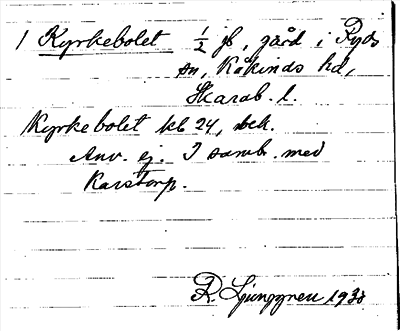 1 Kyrkebolet ½ jb, gård i Ryds
sn, Kåkinds hd,
Skarab. l.
Kyrkebolet kb 24, bek.
Anv. ej. I samb. med
Karstorp.
R. Ljunggren 1938